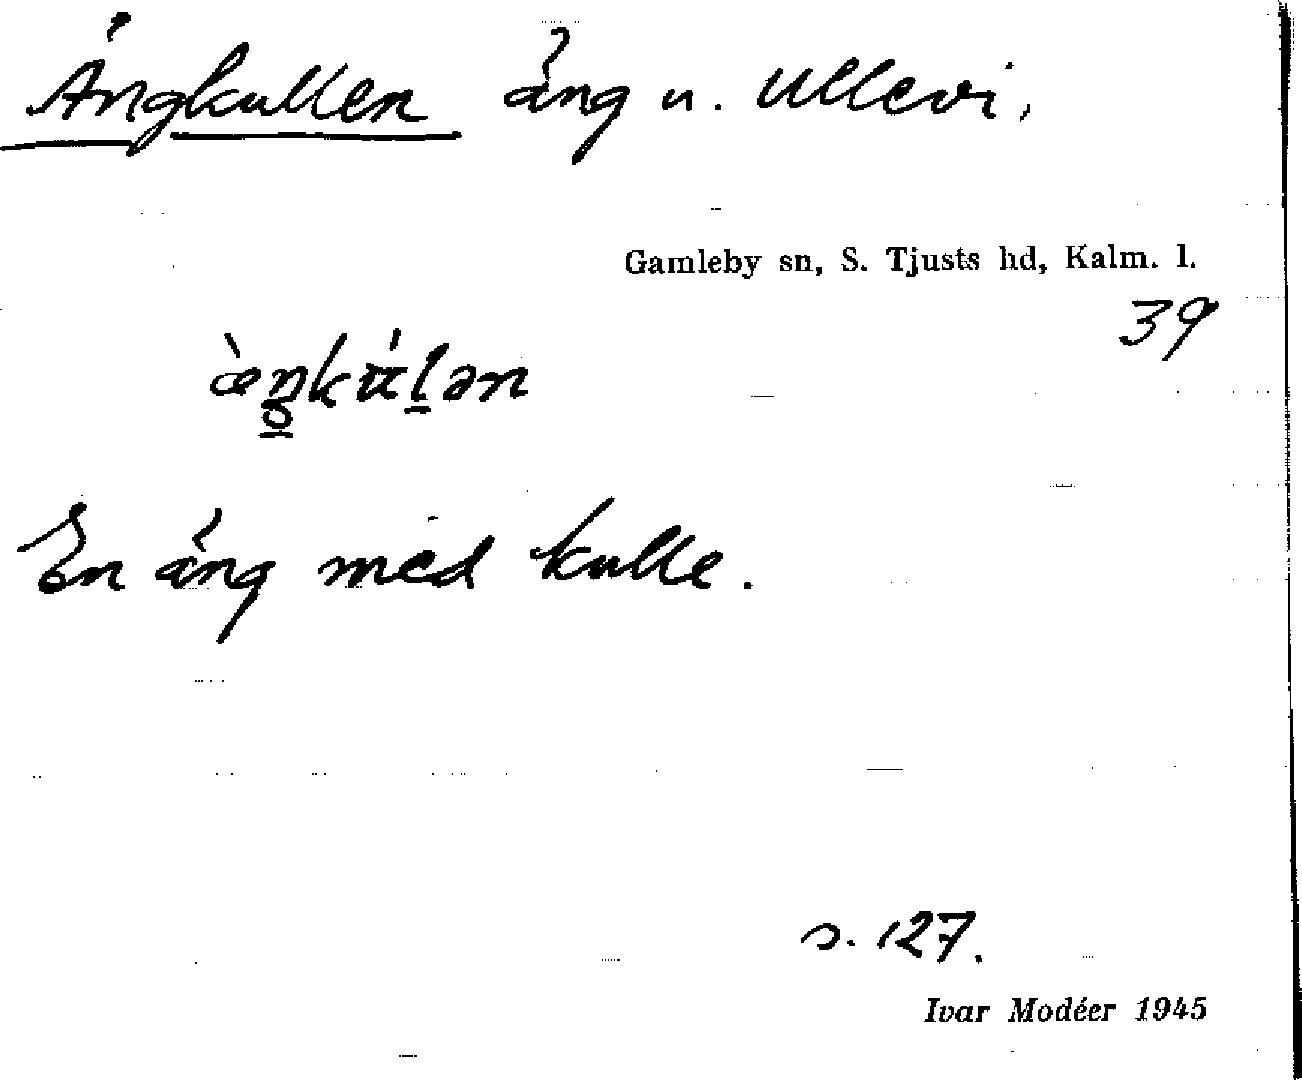 Ängkullen äng u. Ullevi,
Gamleby sn, S. Tjusts hd, Kalm. l.
39
En äng med kulle.
s. 127.
Ivar Modéer 1945